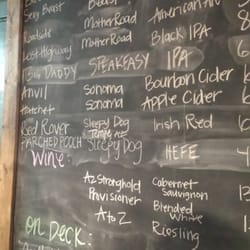 Sexy Beast Beast
Roadside MotherRoad American
Lost Highway MotherRoad Black IPA
Big DADDY SPEAKEASY IPA
Anvil Sonoma Bourbon Cider
Hatchet Sonoma Apple Cider
Red Rover Sleepy Dog Irish Red
Tempe AZ
PARCHED POOCH SLEEPY DOG HEFE
Wine:
AZ Stronghold Cabernet Sauvignon
Provisioner Blended White
A to Z Riesling
on Deck: